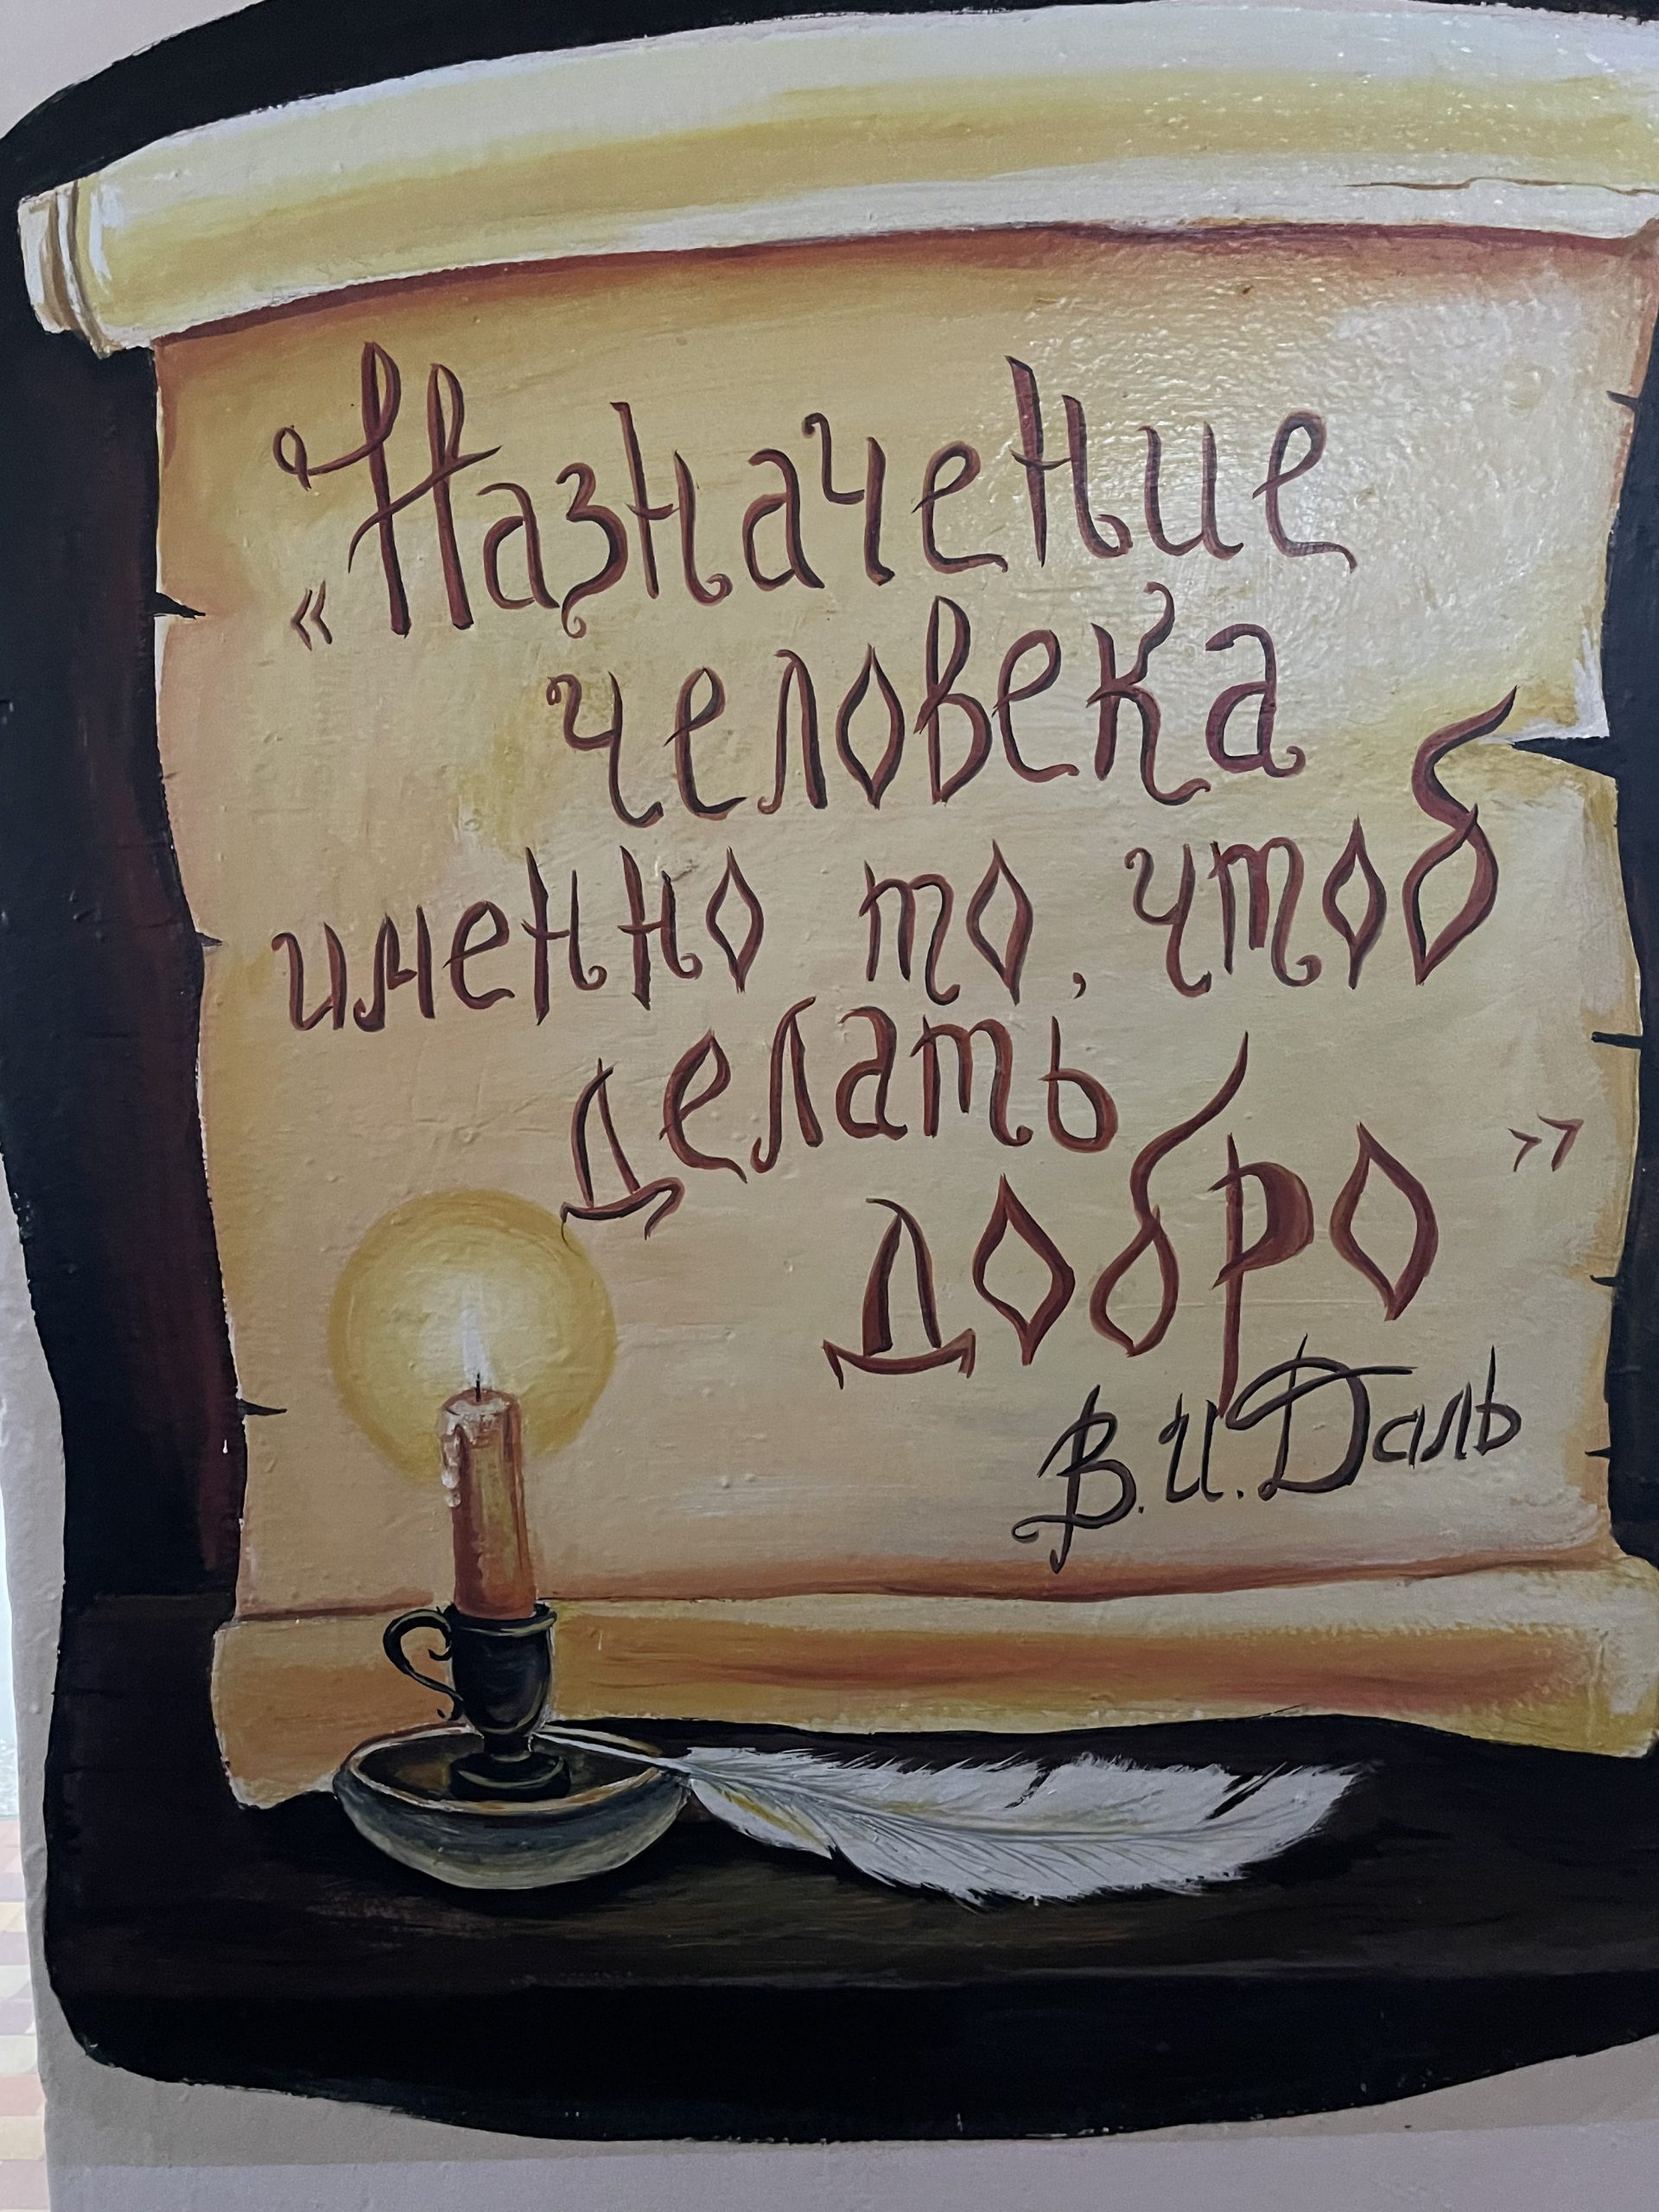 «Назначение
человека
именно то, чтоб
делать
добро»
В.И.Даль